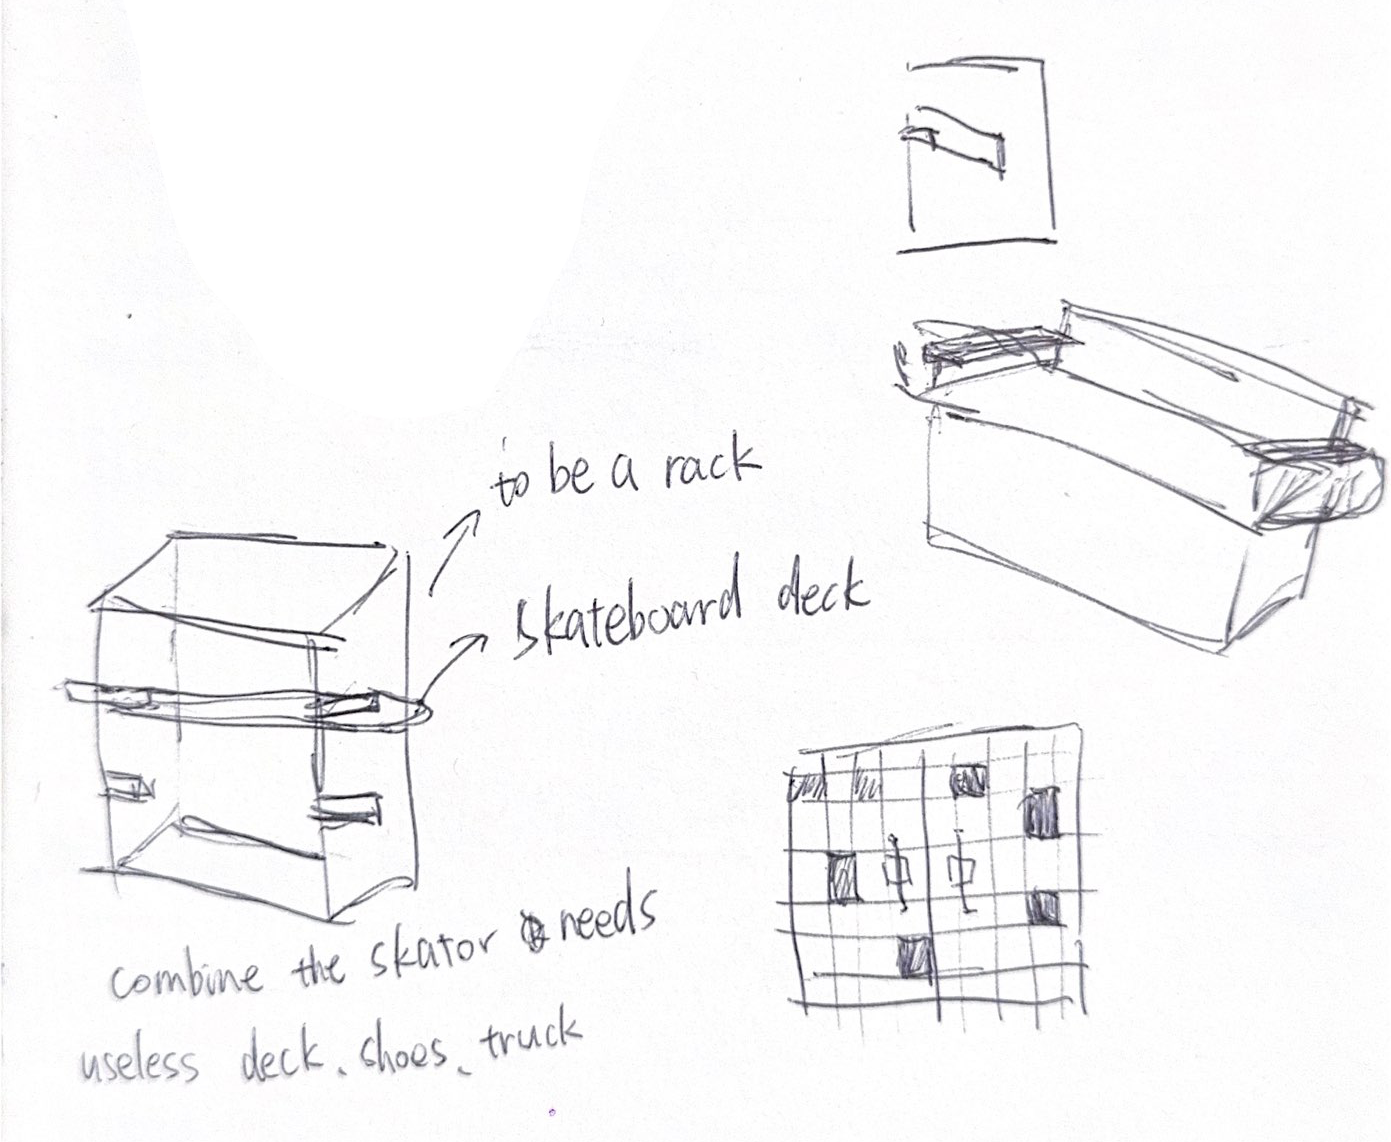 to be a rack
skateboard deck
combine the skator needs
useless deck、shoes、truck